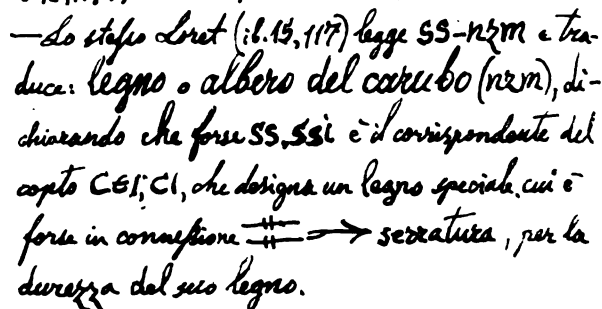 — Lo stesso Loret (ib. 15, 117) legge SS-nzm e tra-
duce: legno o albero del carubo (nzm), di-
chiarando che forse SS, SSi è il corrispondente del
copto CEI, CI, che designa un legno speciale, cui è
forse in connessione serratura, per la
durezza del suo legno.